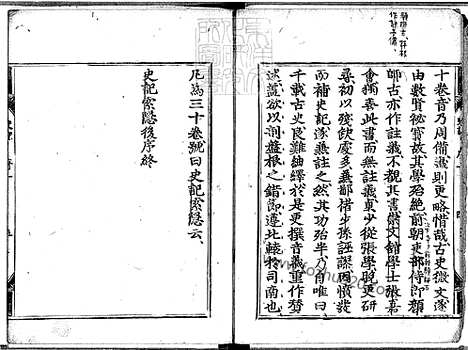 十卷音乃周備義則更略惜哉古史微文遂
由數賢秘寶故其學殆絕前朝吏部侍郎顏
師古亦作註義不覩其書崇文舘學士張嘉
會獨善此書而無註義貞少從張學晚更研
尋初以殘飲處多兼鄙褚少孫誣謬因憤發
而補史記遂兼註之然其功殆半乃自唯曰
千載古史良難紬繹於是更撰音義重作贊
述蓋欲以剖盤根之錯節遵北轅於司南也
凡爲三十卷號曰史記索隱云
史記索隱後序終